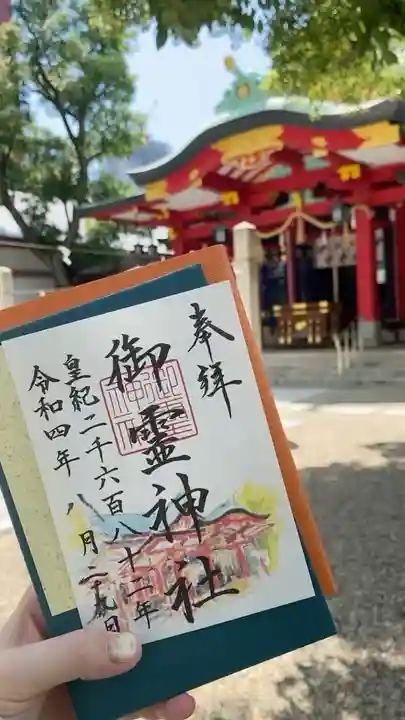 奉拝
御霊神社
皇紀二千六百八十二年
令和四年八月二九日